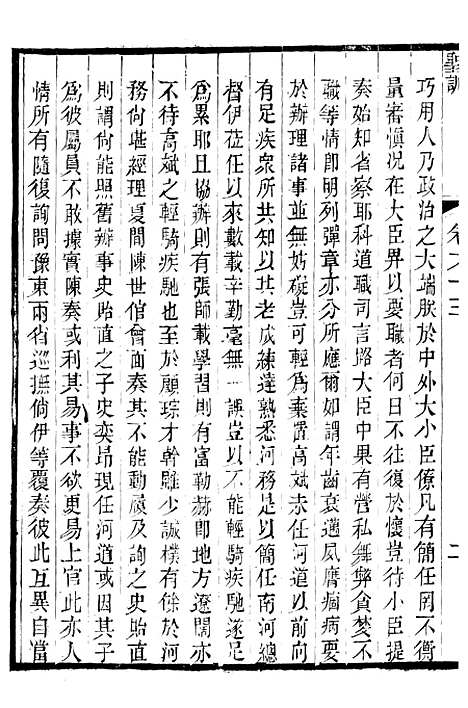 聖訓
卷九十三
二
巧用人乃政治之大端朕於中外大小臣僚凡有簡任罔不衡
量審慎况在大臣畀以要職者何日不往復於懷豈待小臣提
奏始知省察耶科道職司言路大臣中果有營私舞弊貪婪不
職等情卽明列彈章亦分所應爾如謂年齒衰邁夙膺痼病要
於辦理諸事並無妨礙豈可輕爲棄置高斌未簡任之先其時
有足疾衆所共知以其老成練達熟悉河務是以簡任南河總
督伊莅任以來數載辛勤毫無一誤豈以不能輕騎疾馳遂足
爲累耶且協辦則有張師載學習則有富勒赫卽地方遼闊亦
不待高斌之輕騎疾馳也至於顧琮才幹雖少誠樸有餘於河
務尙堪經理夏間陳世倌曾面奏其不能動履及詢之史貽直
則謂尙能照舊辦事史貽直之子史奕昂現任河道或因其子
爲彼屬員不敢據實陳奏或利其易事不欲更易上官此亦人
情所有隨復詢問豫東兩省巡撫倘伊等覆奏彼此互異自當